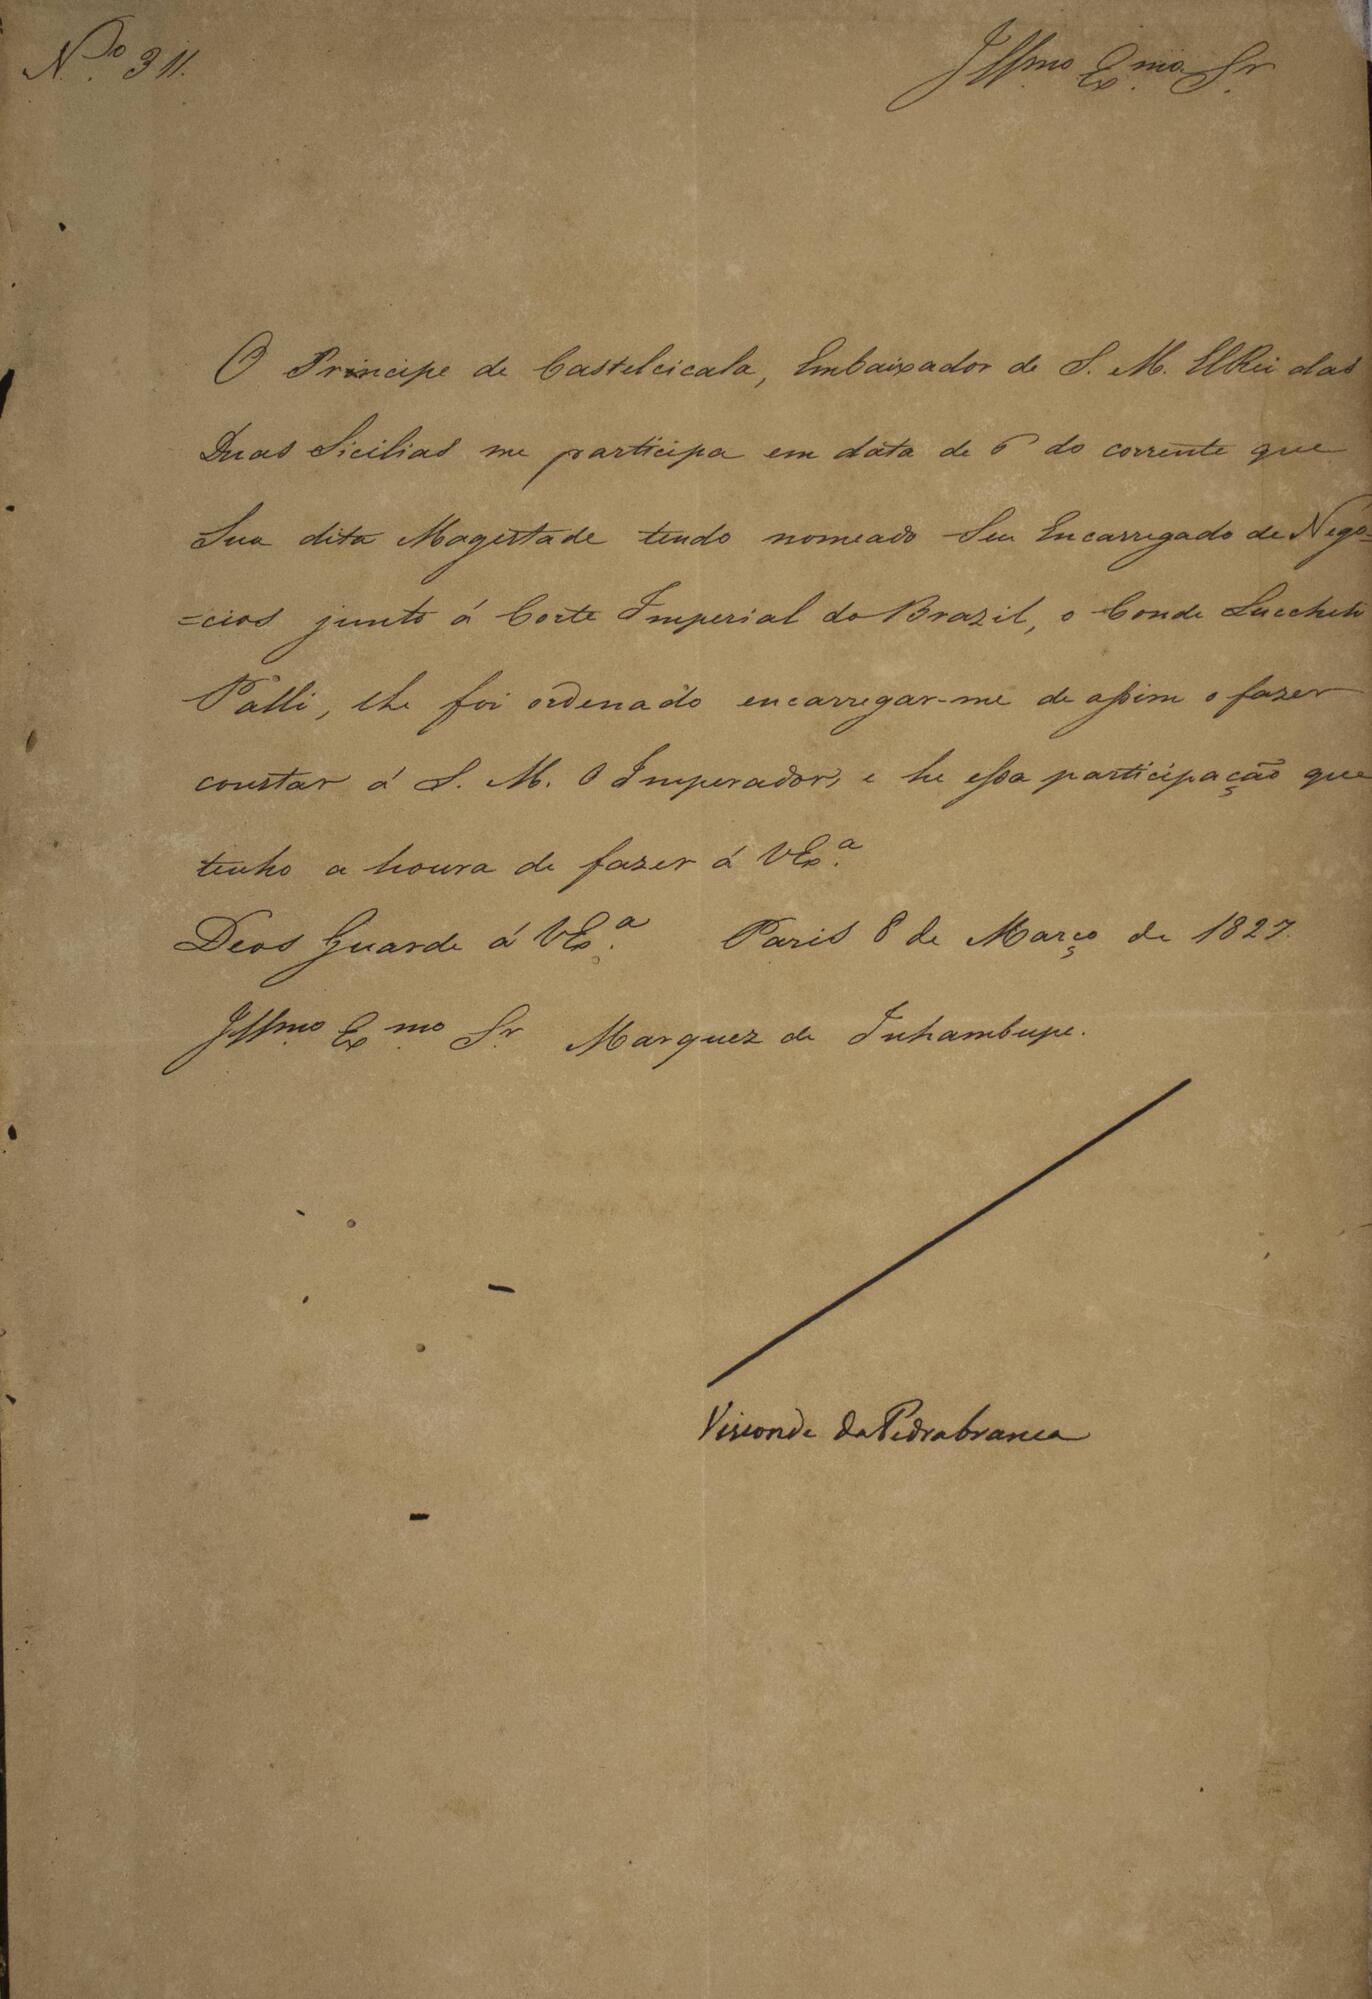 N.º 311.
Illmo. Exmo. Sr.
O Principe de Castelcicala, Embaixador de S. M. ElRei das
Duas Sicilias me participa em data de 6 do corrente que
Sua dita Magestade tendo nomeado Seu Encarregado de Nego=
=cios junto á Corte Imperial do Brazil, o Conde Lucchesi
Palli, lhe foi ordenado encarregar-me de assim o fazer
constar á S. M. O Imperador, e he essa participação que
tenho a honra de fazer á VEx.ª
Deos Guarde á VEx.ª Paris 8 de Março de 1827.
Illmo. Exmo. Sr Marquez de Inhambupe.
Visconde da Pedrabranca